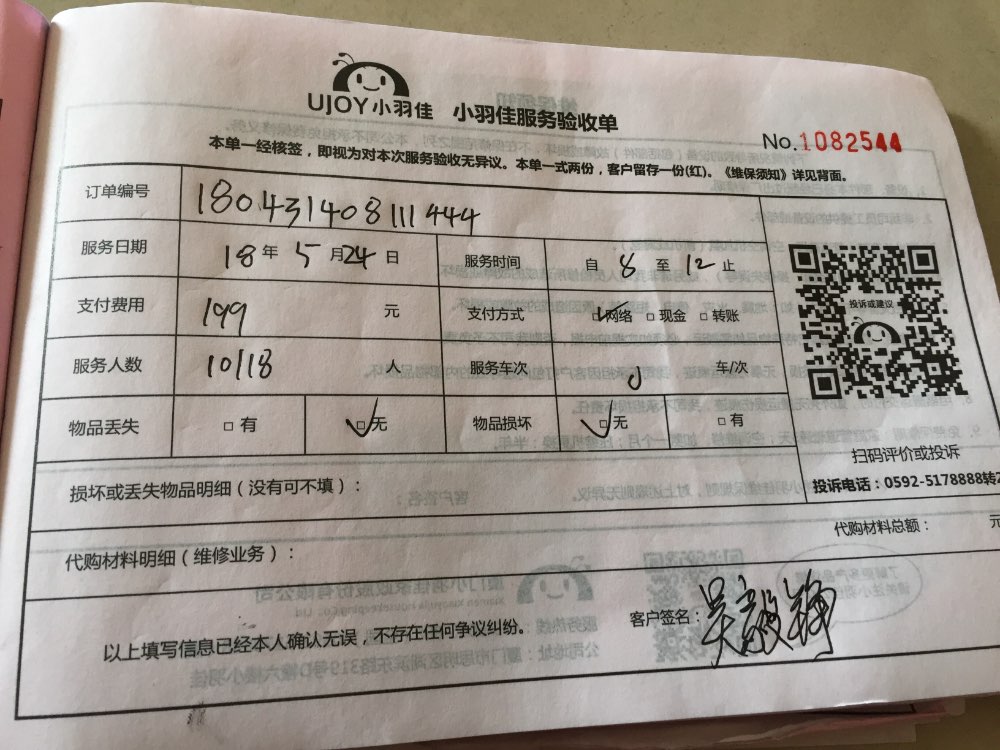 UJOY小羽佳 小羽佳服务验收单
No.1082544
本单一经核签，即视为对本次服务验收无异议。本单一式两份，客户留存一份(红)。《维保须知》详见背面。
订单编号 180431408111444
服务日期 18年5月24日 服务时间 自8至12止
支付费用 199元 支付方式 □网络 □现金 □转账
服务人数 10118人 服务车次 车/次
物品丢失 □有 □无 物品损坏 □无 □有
投诉或建议
扫码评价或投诉
投诉电话：0592-5178888转2
损坏或丢失物品明细（没有可不填）：
代购材料明细（维修业务）： 代购材料总额： 元
以上填写信息已经本人确认无误，不存在任何争议纠纷。 客户签名：